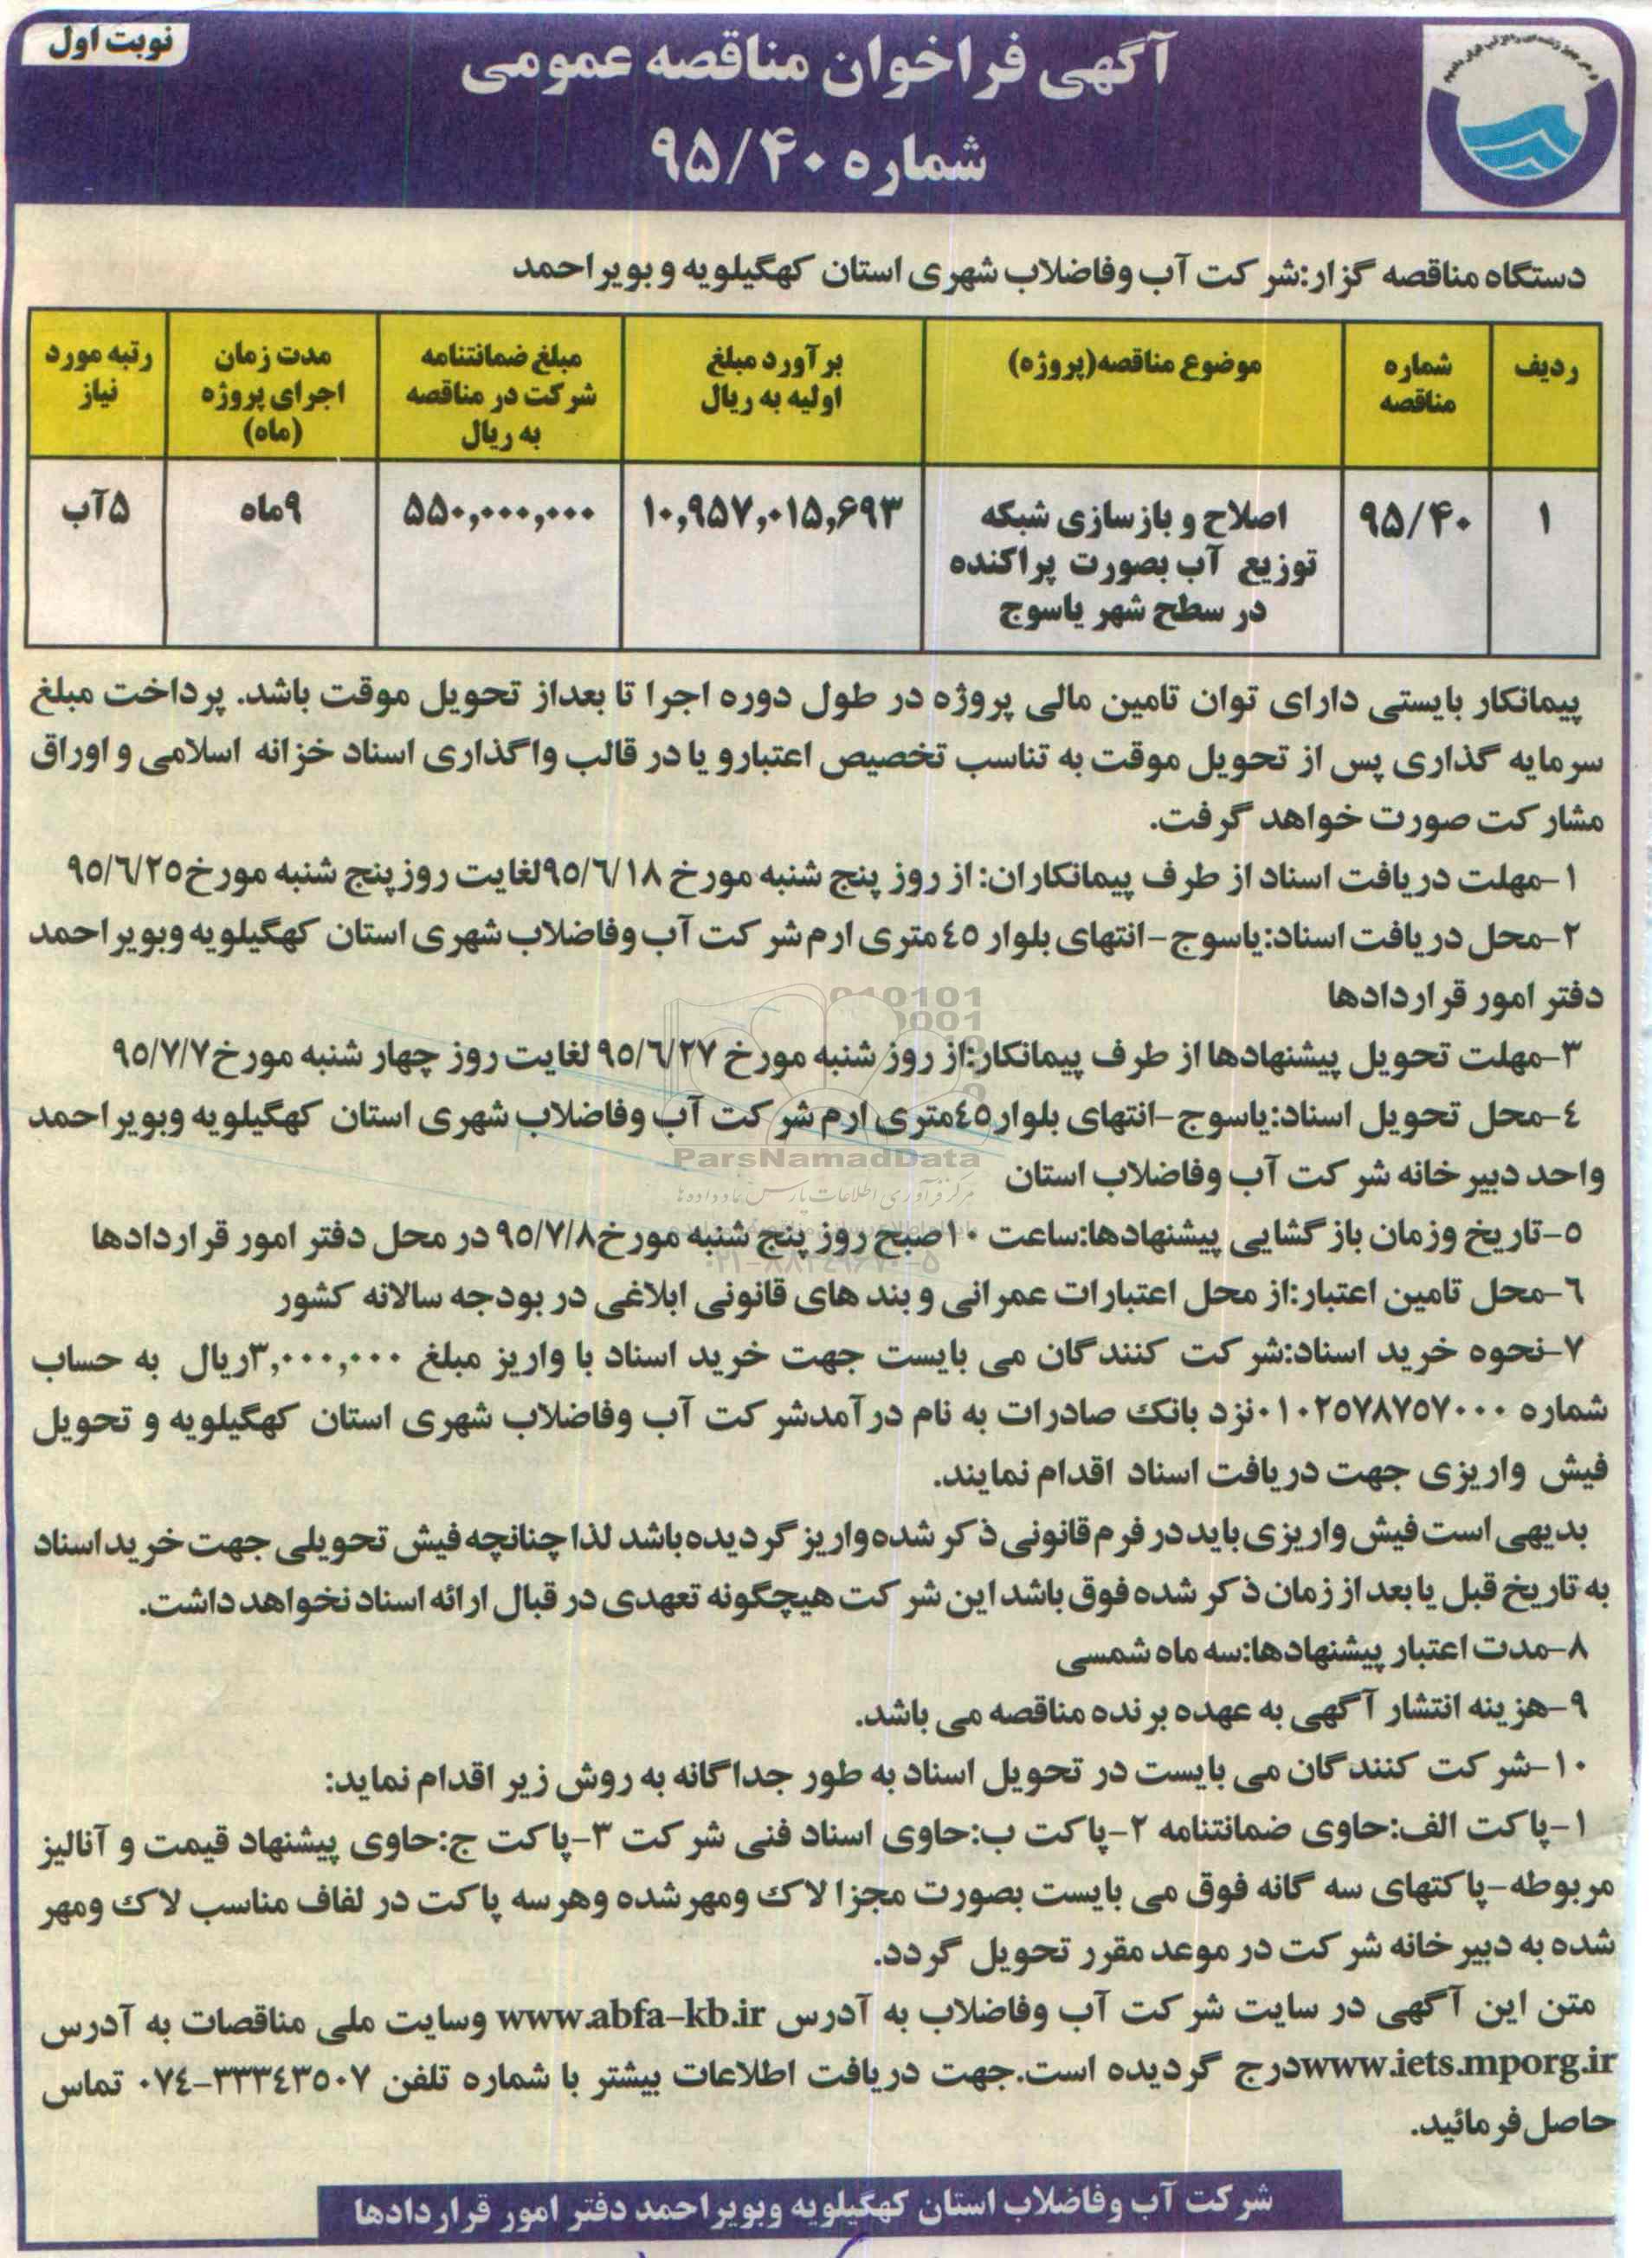 نوبت اول
آگهی فراخوان مناقصه عمومی
شماره ۹۵/۴۰
دستگاه مناقصه گزار:شرکت آب وفاضلاب شهری استان کهگیلویه و بویراحمد
ردیف
شماره
مناقصه
موضوع مناقصه(پروژه)
برآورد مبلغ
اولیه به ریال
مبلغ ضمانتنامه
شرکت در مناقصه
به ریال
مدت زمان
اجرای پروژه
(ماه)
رتبه مورد
نیاز
۱
۹۵/۴۰
اصلاح و بازسازی شبکه
توزیع آب بصورت پراکنده
در سطح شهر یاسوج
۱۰,۹۵۷,۰۱۵,۶۹۳
۵۵۰,۰۰۰,۰۰۰
۹ماه
۵آب
پیمانکار بایستی دارای توان تامین مالی پروژه در طول دوره اجرا تا بعداز تحویل موقت باشد. پرداخت مبلغ
سرمایه گذاری پس از تحویل موقت به تناسب تخصیص اعتبارو یا در قالب واگذاری اسناد خزانه اسلامی و اوراق
مشارکت صورت خواهد گرفت.
۱-مهلت دریافت اسناد از طرف پیمانکاران: از روز پنج شنبه مورخ ۹۵/۶/۱۸لغایت روزپنج شنبه مورخ۹۵/۶/۲۵
۲-محل دریافت اسناد:یاسوج-انتهای بلوار ۴۵متری ارم شرکت آب وفاضلاب شهری استان کهگیلویه وبویراحمد
دفتر امور قراردادها
۳-مهلت تحویل پیشنهادها از طرف پیمانکار:از روز شنبه مورخ ۹۵/۶/۲۷ لغایت روز چهار شنبه مورخ۹۵/۷/۷
۴-محل تحویل اسناد:یاسوج-انتهای بلوار۴۵متری ارم شرکت آب وفاضلاب شهری استان کهگیلویه وبویراحمد
واحد دبیرخانه شرکت آب وفاضلاب استان
ParsNamadData
۵-تاریخ وزمان بازگشایی پیشنهادها:ساعت ۱۰صبح روز پنج شنبه مورخ۹۵/۷/۸ در محل دفتر امور قراردادها
۶-محل تامین اعتبار:از محل اعتبارات عمرانی و بند های قانونی ابلاغی در بودجه سالانه کشور
۷-نحوه خرید اسناد:شرکت کنندگان می بایست جهت خرید اسناد با واریز مبلغ ۳,۰۰۰,۰۰۰ریال به حساب
شماره ۰۱۰۲۵۷۸۷۵۷۰۰۰نزد بانک صادرات به نام درآمدشرکت آب وفاضلاب شهری استان کهگیلویه و تحویل
فیش واریزی جهت دریافت اسناد اقدام نمایند.
بدیهی است فیش واریزی باید در فرم قانونی ذکر شده واریز گردیده باشد لذا چنانچه فیش تحویلی جهت خرید اسناد
به تاریخ قبل یا بعد از زمان ذکر شده فوق باشد این شرکت هیچگونه تعهدی در قبال ارائه اسناد نخواهد داشت.
۸-مدت اعتبار پیشنهادها:سه ماه شمسی
۹-هزینه انتشار آگهی به عهده برنده مناقصه می باشد.
۱۰-شرکت کنندگان می بایست در تحویل اسناد به طور جداگانه به روش زیر اقدام نماید:
۱-پاکت الف:حاوی ضمانتنامه ۲-پاکت ب:حاوی اسناد فنی شرکت ۳-پاکت ج:حاوی پیشنهاد قیمت و آنالیز
مربوطه-پاکتهای سه گانه فوق می بایست بصورت مجزا لاک ومهرشده وهرسه پاکت در لفاف مناسب لاک ومهر
شده به دبیرخانه شرکت در موعد مقرر تحویل گردد.
متن این آگهی در سایت شرکت آب وفاضلاب به آدرس www.abfa-kb.ir وسایت ملی مناقصات به آدرس
www.iets.mporg.irدرج گردیده است.جهت دریافت اطلاعات بیشتر با شماره تلفن ۳۳۳۴۳۵۰۷-۰۷۴ تماس
حاصل فرمائید.
شرکت آب وفاضلاب استان کهگیلویه وبویراحمد دفتر امور قراردادها